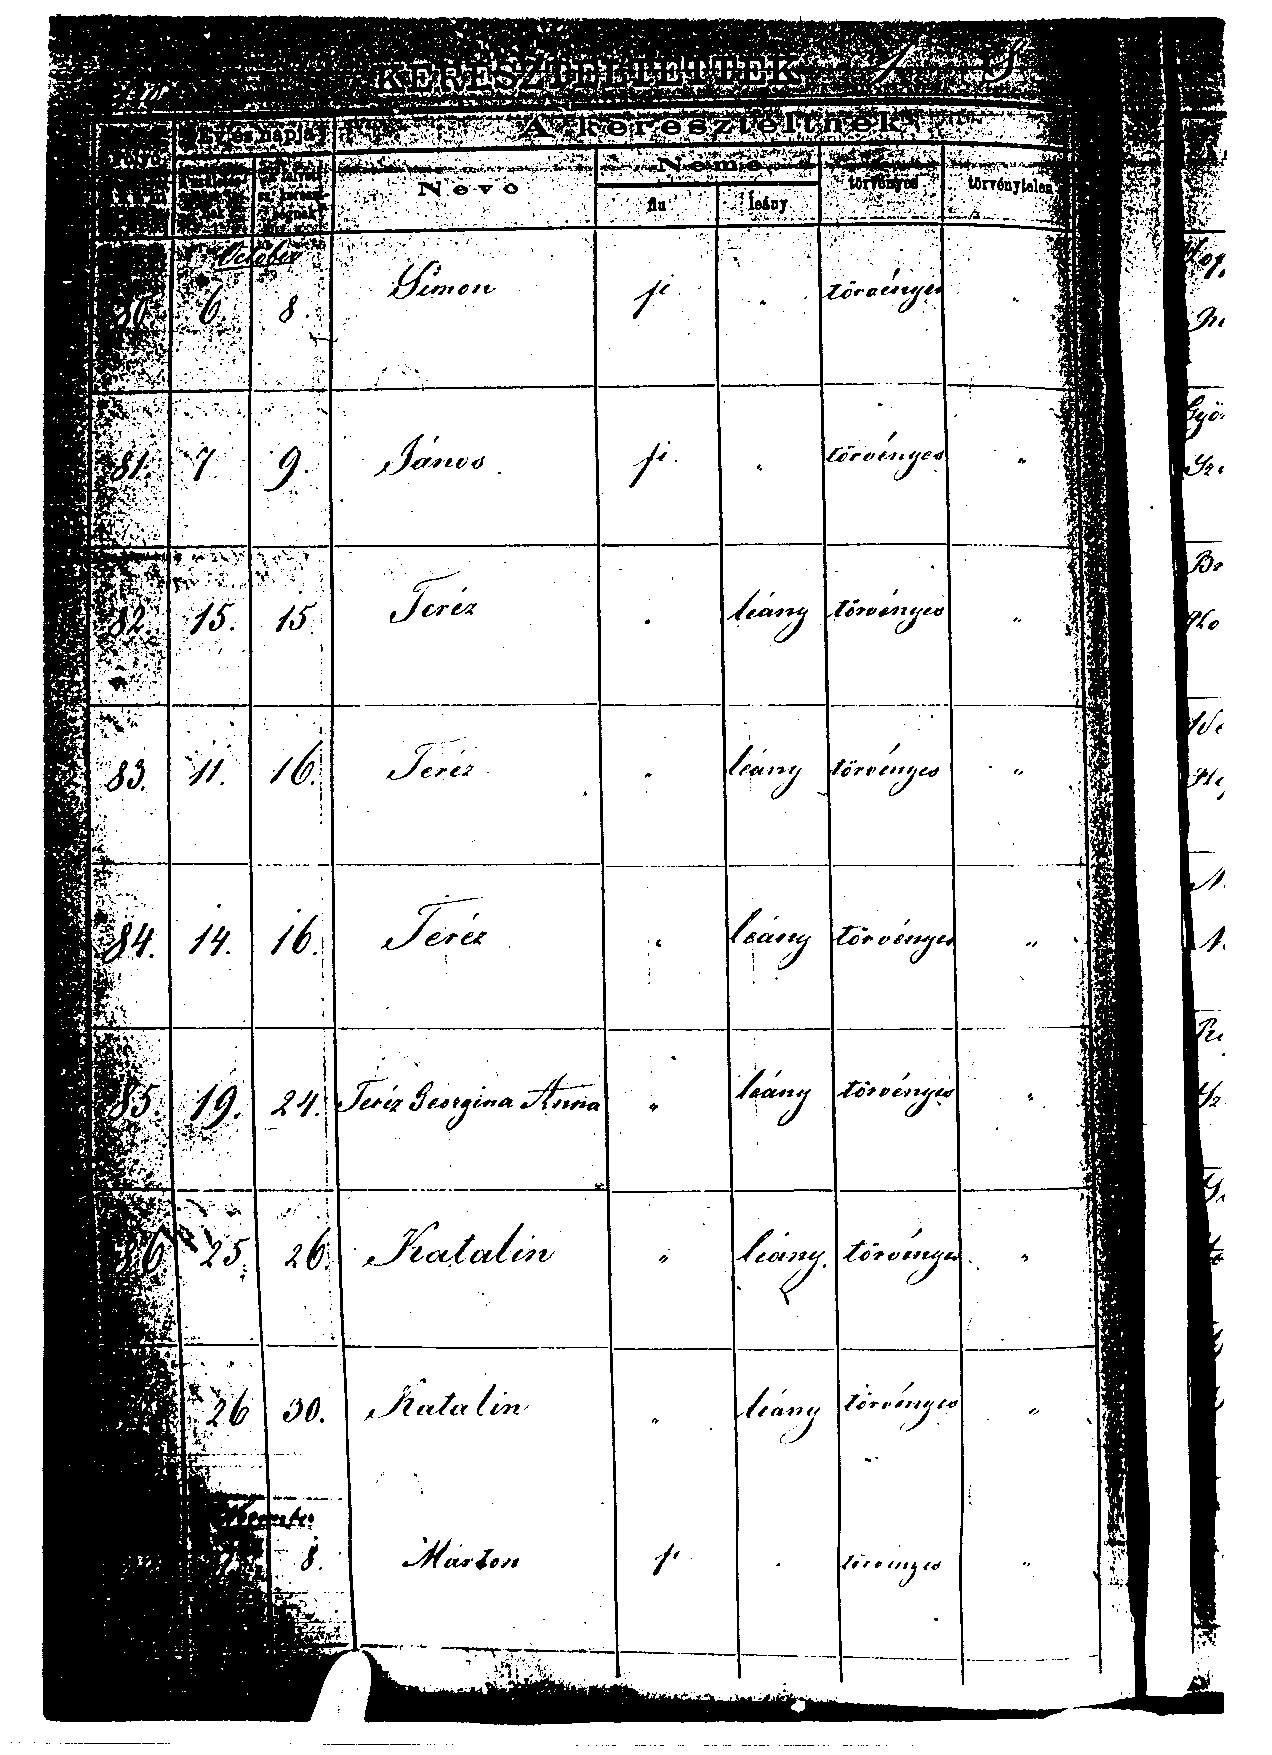 KERESZTELTETTEK
A kereszteltnek
Neve
Neme
fiu
leány
törvényes
törvénytelen
October
80. 6. 8. Simon fi " törvényes "
81. 7 9. János fi " törvényes "
82. 15. 15. Teréz " leány törvényes "
83. 11. 16. Teréz " leány törvényes "
84. 14. 16. Teréz " leány törvényes "
85. 19. 24. Teréz Georgina Anna " leány törvényes "
86 25. 26. Katalin " leány törvényes "
26 30. Katalin " leány törvényes "
8. Márton fi " törvényes "